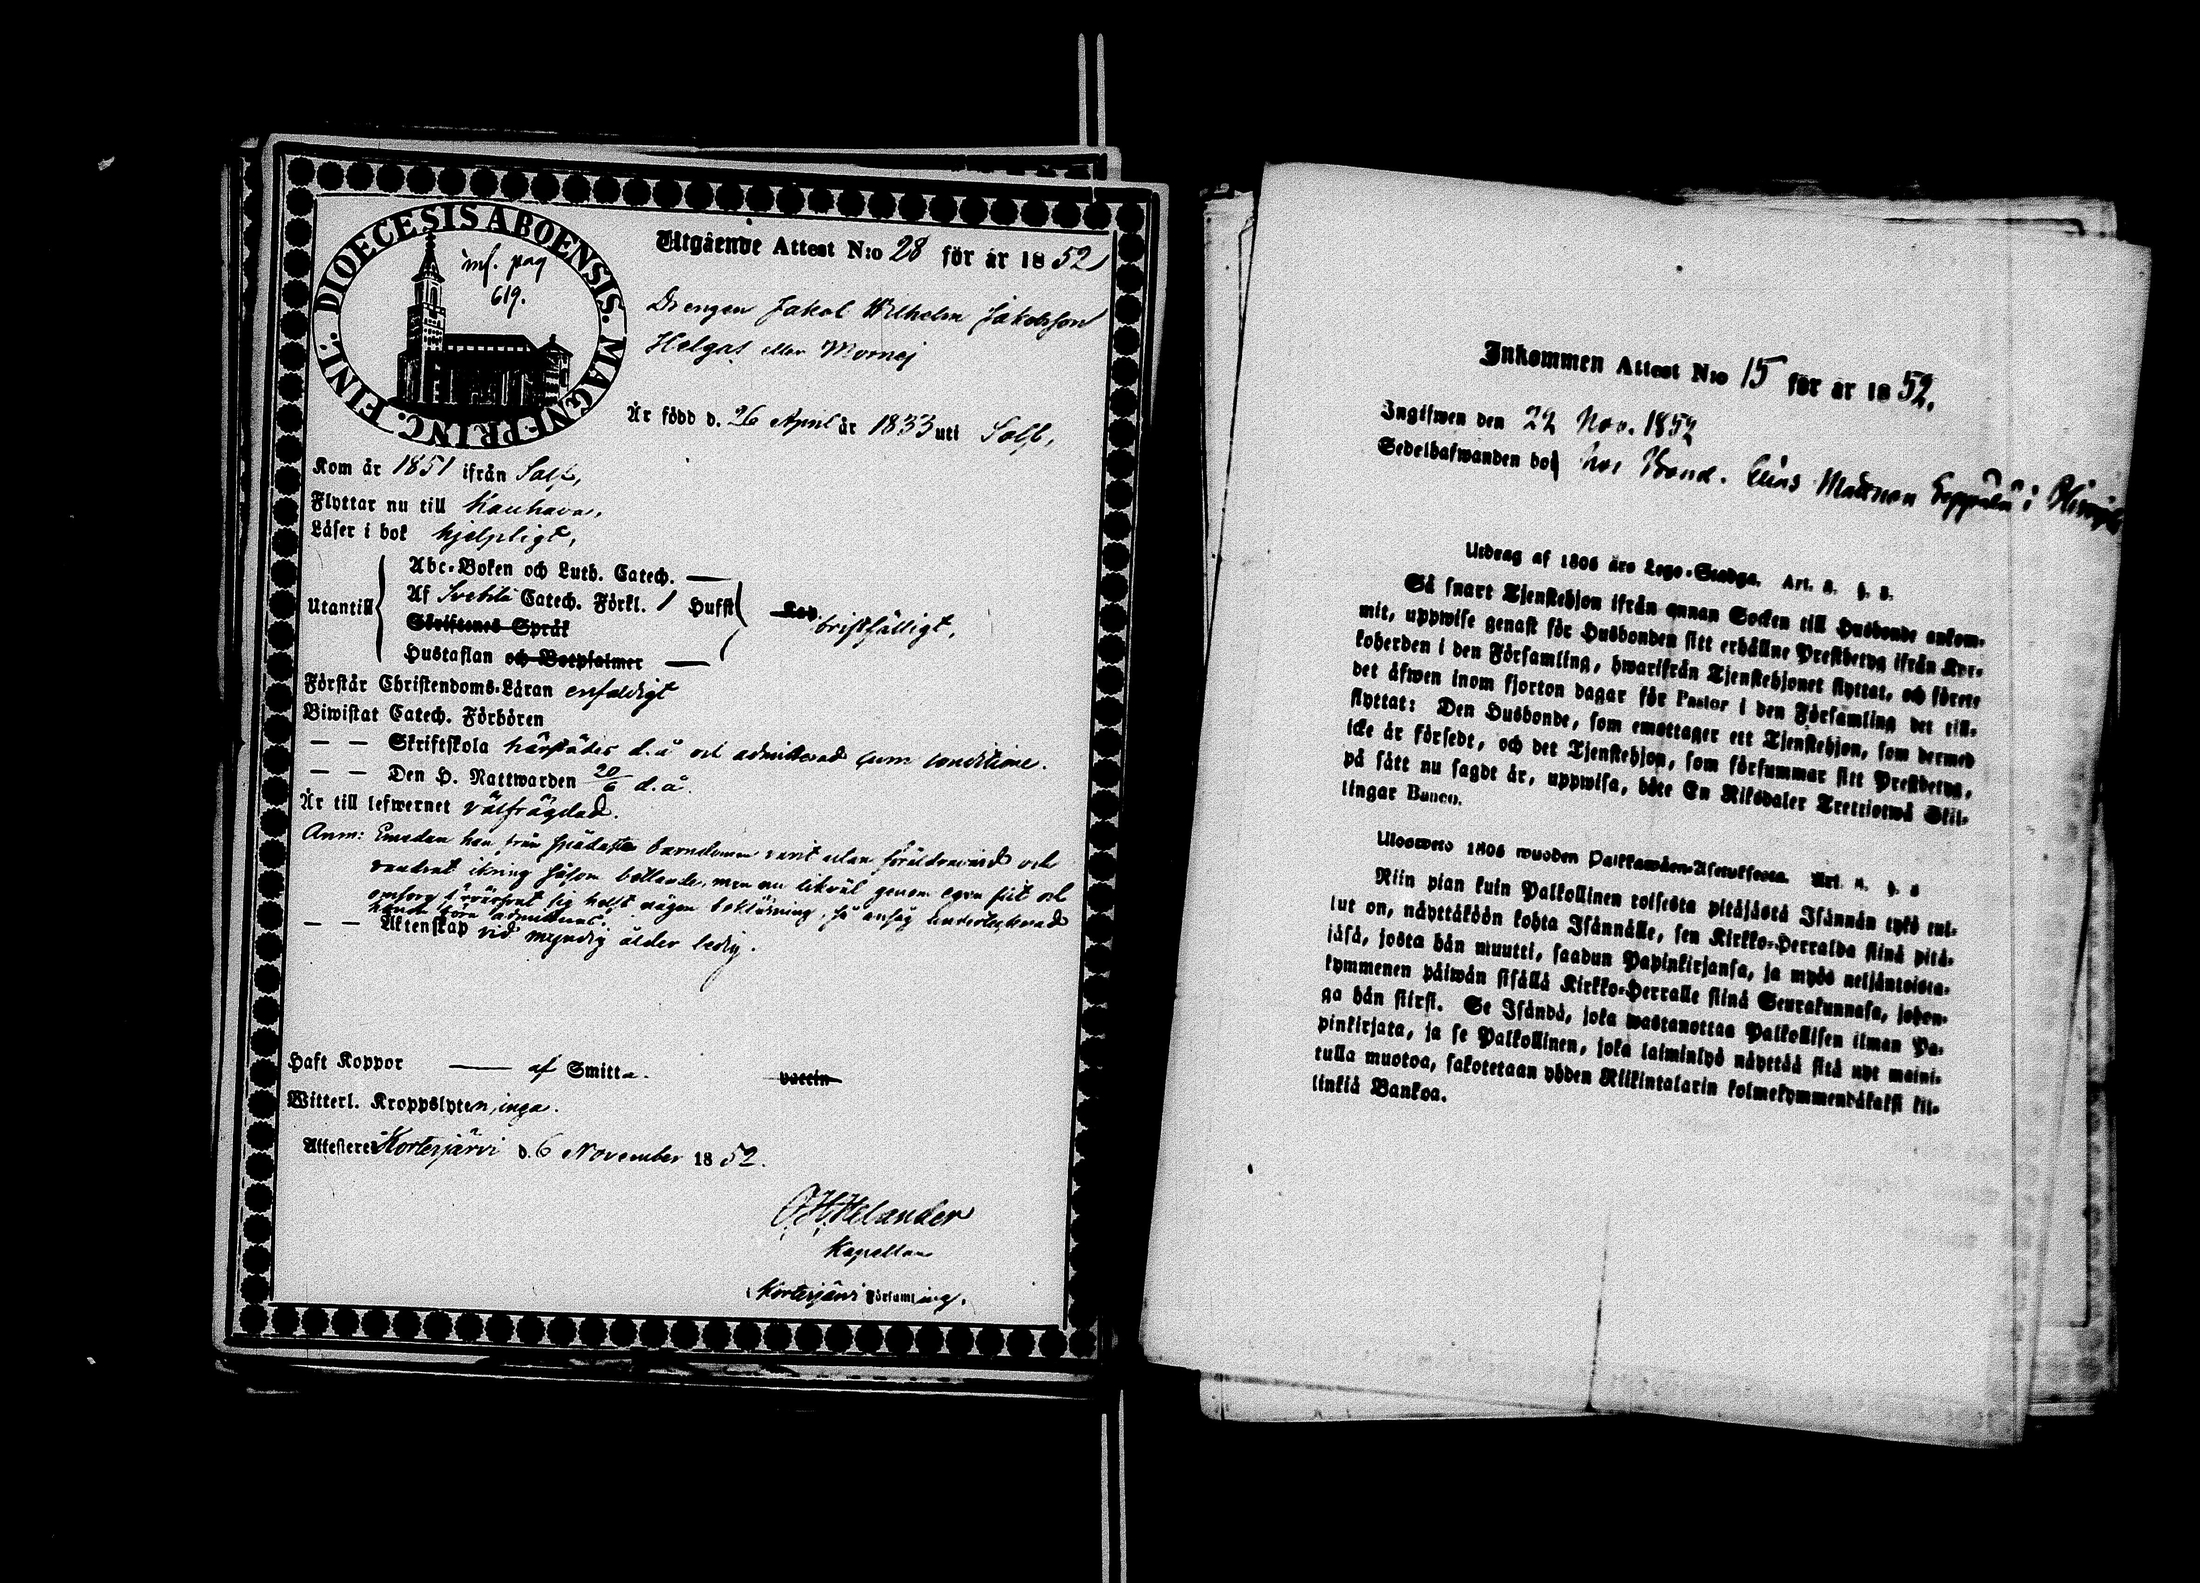 DIOECESIS ABOENSIS. MAGNI PRINC. FINL.
inf. pag
619.
Utgående Attest N:o 28 för år 1852
Drengen Jakob Wilhelm Jakobsson
Helgas eller
År född d. 26 April år 1833 uti Solf,
Kom år 1851 ifrån Solf,
Flyttar nu till Kauhava,
Läser i bok hjelpligt,
Utantill
Abc-Boken och Luth. Catech. —
Af Svebilii Catech. Förkl. 1 Hufst
Skriftenes Språk
Hustaflan och Botpsalmer —
bristfälligt,
Förstår Christendoms-Läran enfaldigt
Biwistat Catech. Förhören
— — Skriftskola härstädes d.å och admitterad cum conditione.
— — Den H. Nattwarden 20/6 d.å.
Är till lefwernet välfrägdad.
Anm: Emedan han från spädaste barndomen varit utan föräldravård och
vandrat ikring såsom bettlande, men nu likväl genom egen flit och
omsorg förvärfvat sig helst någon boklärning, så ansåg undertecknad
honom böra admitteras.
— — Äktenskap vid myndig ålder ledig.
Haft Koppor — af Smitta. vaccin
Witterl. Kroppslyten, inga.
Attesteres Kortesjärvi d. 6 November 1852.
Helander
Kapellan
i Kortesjärvi Församling.
Inkommen Attest N:o 15 för år 1852.
Ingifwen den 22 Nov. 1852
Sedelhafwanden bor hos Bond. Elias Mattsson i
Utdrag af 1805 års Lego-Stadga. Art. 2. §. 2.
Så snart Tjenstehjon ifrån annan Socken till Husbonde ankom-
mit, uppwise genast för Husbonden sitt erhållne Prestbetyg ifrån Kyr-
koherden i den Församling, hwarifrån Tjenstehjonet flyttat, och förete
det äfwen inom fjorton dagar för Pastor i den Församling det till-
flyttat: Den Husbonde, som emottager ett Tjenstehjon, som dermed
icke är försedt, och det Tjenstehjon, som försummar sitt Prestbetyg,
på sätt nu sagdt är, uppwisa, böte En Riksdaler Trettiotwå Skil-
lingar Banco.
Ulosweto 1805 wuoden Palkkawäen-Asetuksesta. Art. 2. §. 2
Niin pian kuin Palkollinen toisesta pitäjästä Isännän tykö tul-
lut on, näyttäköön kohta Isännälle, sen Kirkko-Herralda siinä pitä-
jäsä, josta hän muutti, saadun Papinkirjansa, ja myös neljäntoista-
kymmenen päiwän sisällä Kirkko-Herralle siinä Seurakunnasa, johon-
ga hän siirsi. Se Isändä, joka wastanottaa Palkollisen ilman Pa-
pinkirjata, ja se Palkollinen, joka laiminlyö näyttää sitä nyt maini-
tulla muotoa, sakotetaan yhden Riikintalarin kolmekymmendäkaksi kil-
linkiä Bankoa.